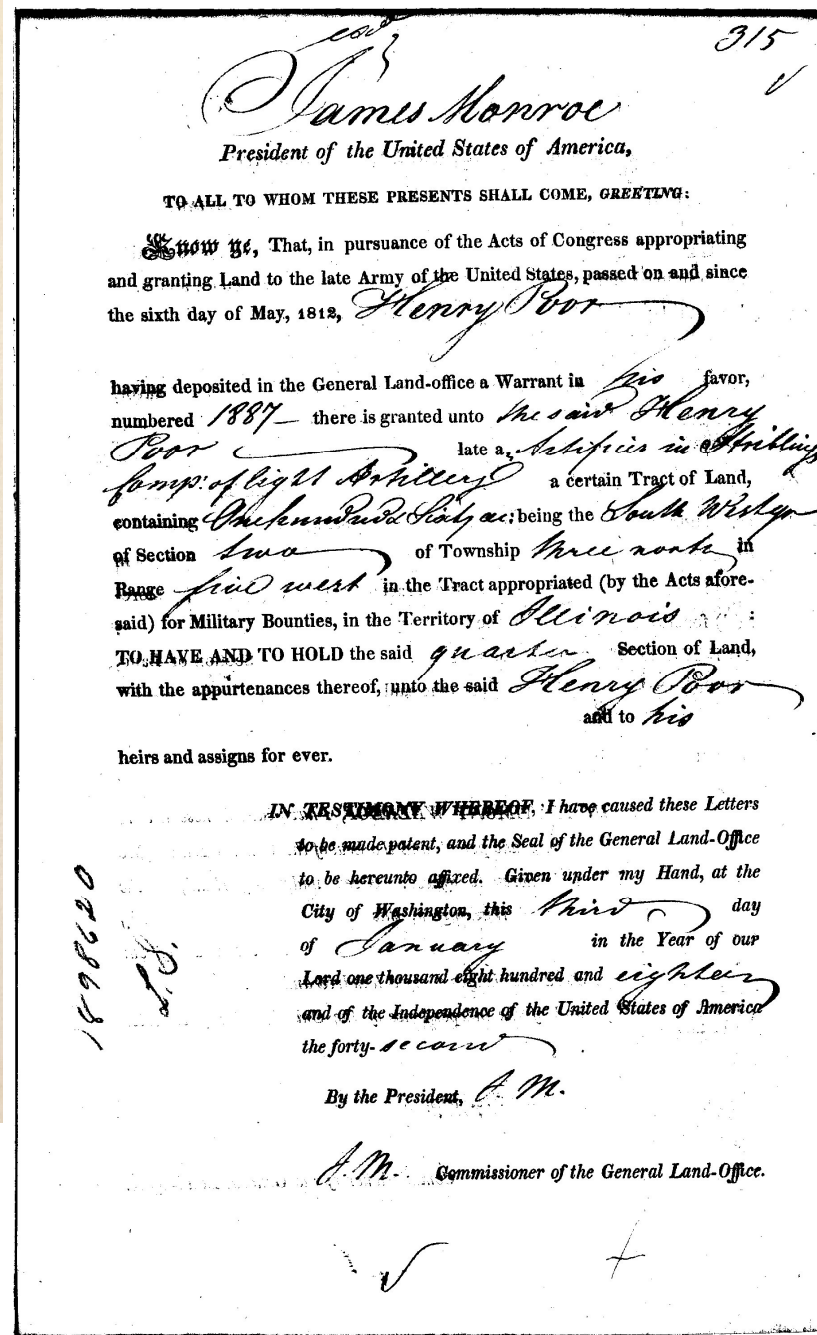 315
James Monroe
President of the United States of America,
TO ALL TO WHOM THESE PRESENTS SHALL COME, GREETING:
Know ye, That, in pursuance of the Acts of Congress appropriating
and granting Land to the late Army of the United States, passed on and since
the sixth day of May, 1812, Henry Poor
having deposited in the General Land-office a Warrant in his favor,
numbered 1887 – there is granted unto the said Henry
Poor late a Artificer in Stribling's
Comp: of light Artillery a certain Tract of Land,
containing One hundred & Sixty ac: being the South West qr
of Section two of Township three north in
Range five west in the Tract appropriated (by the Acts afore-
said) for Military Bounties, in the Territory of Illinois :
TO HAVE AND TO HOLD the said quarter Section of Land,
with the appurtenances thereof, unto the said Henry Poor
and to his
heirs and assigns for ever.
IN TESTIMONY WHEREOF, I have caused these Letters
to be made patent, and the Seal of the General Land-Office
to be hereunto affixed. Given under my Hand, at the
City of Washington, this third day
of January in the Year of our
Lord one thousand eight hundred and eighteen
and of the Independence of the United States of America
the forty-second
By the President, J. M.
J. M. Commissioner of the General Land-Office.
L.S.
1898620